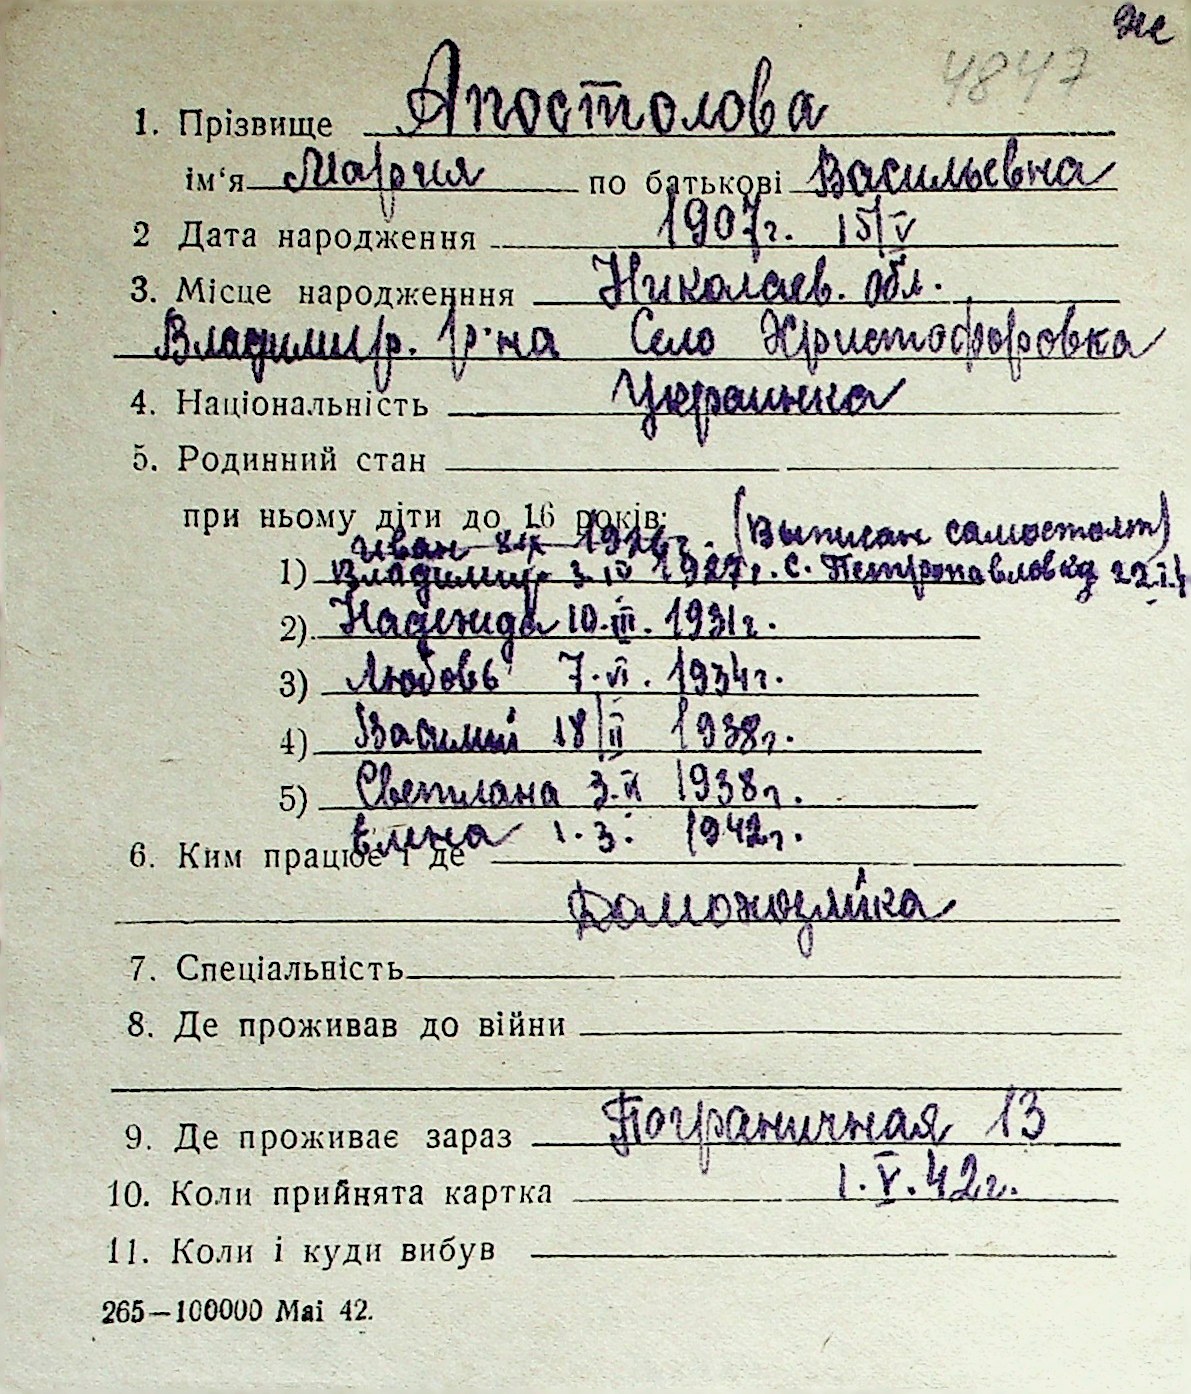 же
4847
1. Прізвище Апостолова
ім'я Мария по батькові Васильевна
2 Дата народження 1907г. 15/V
3. Місце народженння Николаев. обл.
Владимир. р-на Село Христофоровка
4. Національність Украинка
5. Родинний стан
при ньому діти до 16 років:
Иван 1926г. (Выписан самостоят)
1) Владимир 3.IV 1927г. с. Петропавловка
2). Надежда 10.III. 1931г.
3) Любовь 7.VI. 1934г.
4) Василий 18/II 1938г.
5) Светлана 3.II 1938г.
Елена 1.3. 1942г.
6. Ким працює і де
Домохозяйка
7. Спеціальність
8. Де проживав до війни
9. Де проживає зараз Пограничная 13
10. Коли прийнята картка 1.V.42г.
11. Коли і куди вибув
265—100000 Маі 42.